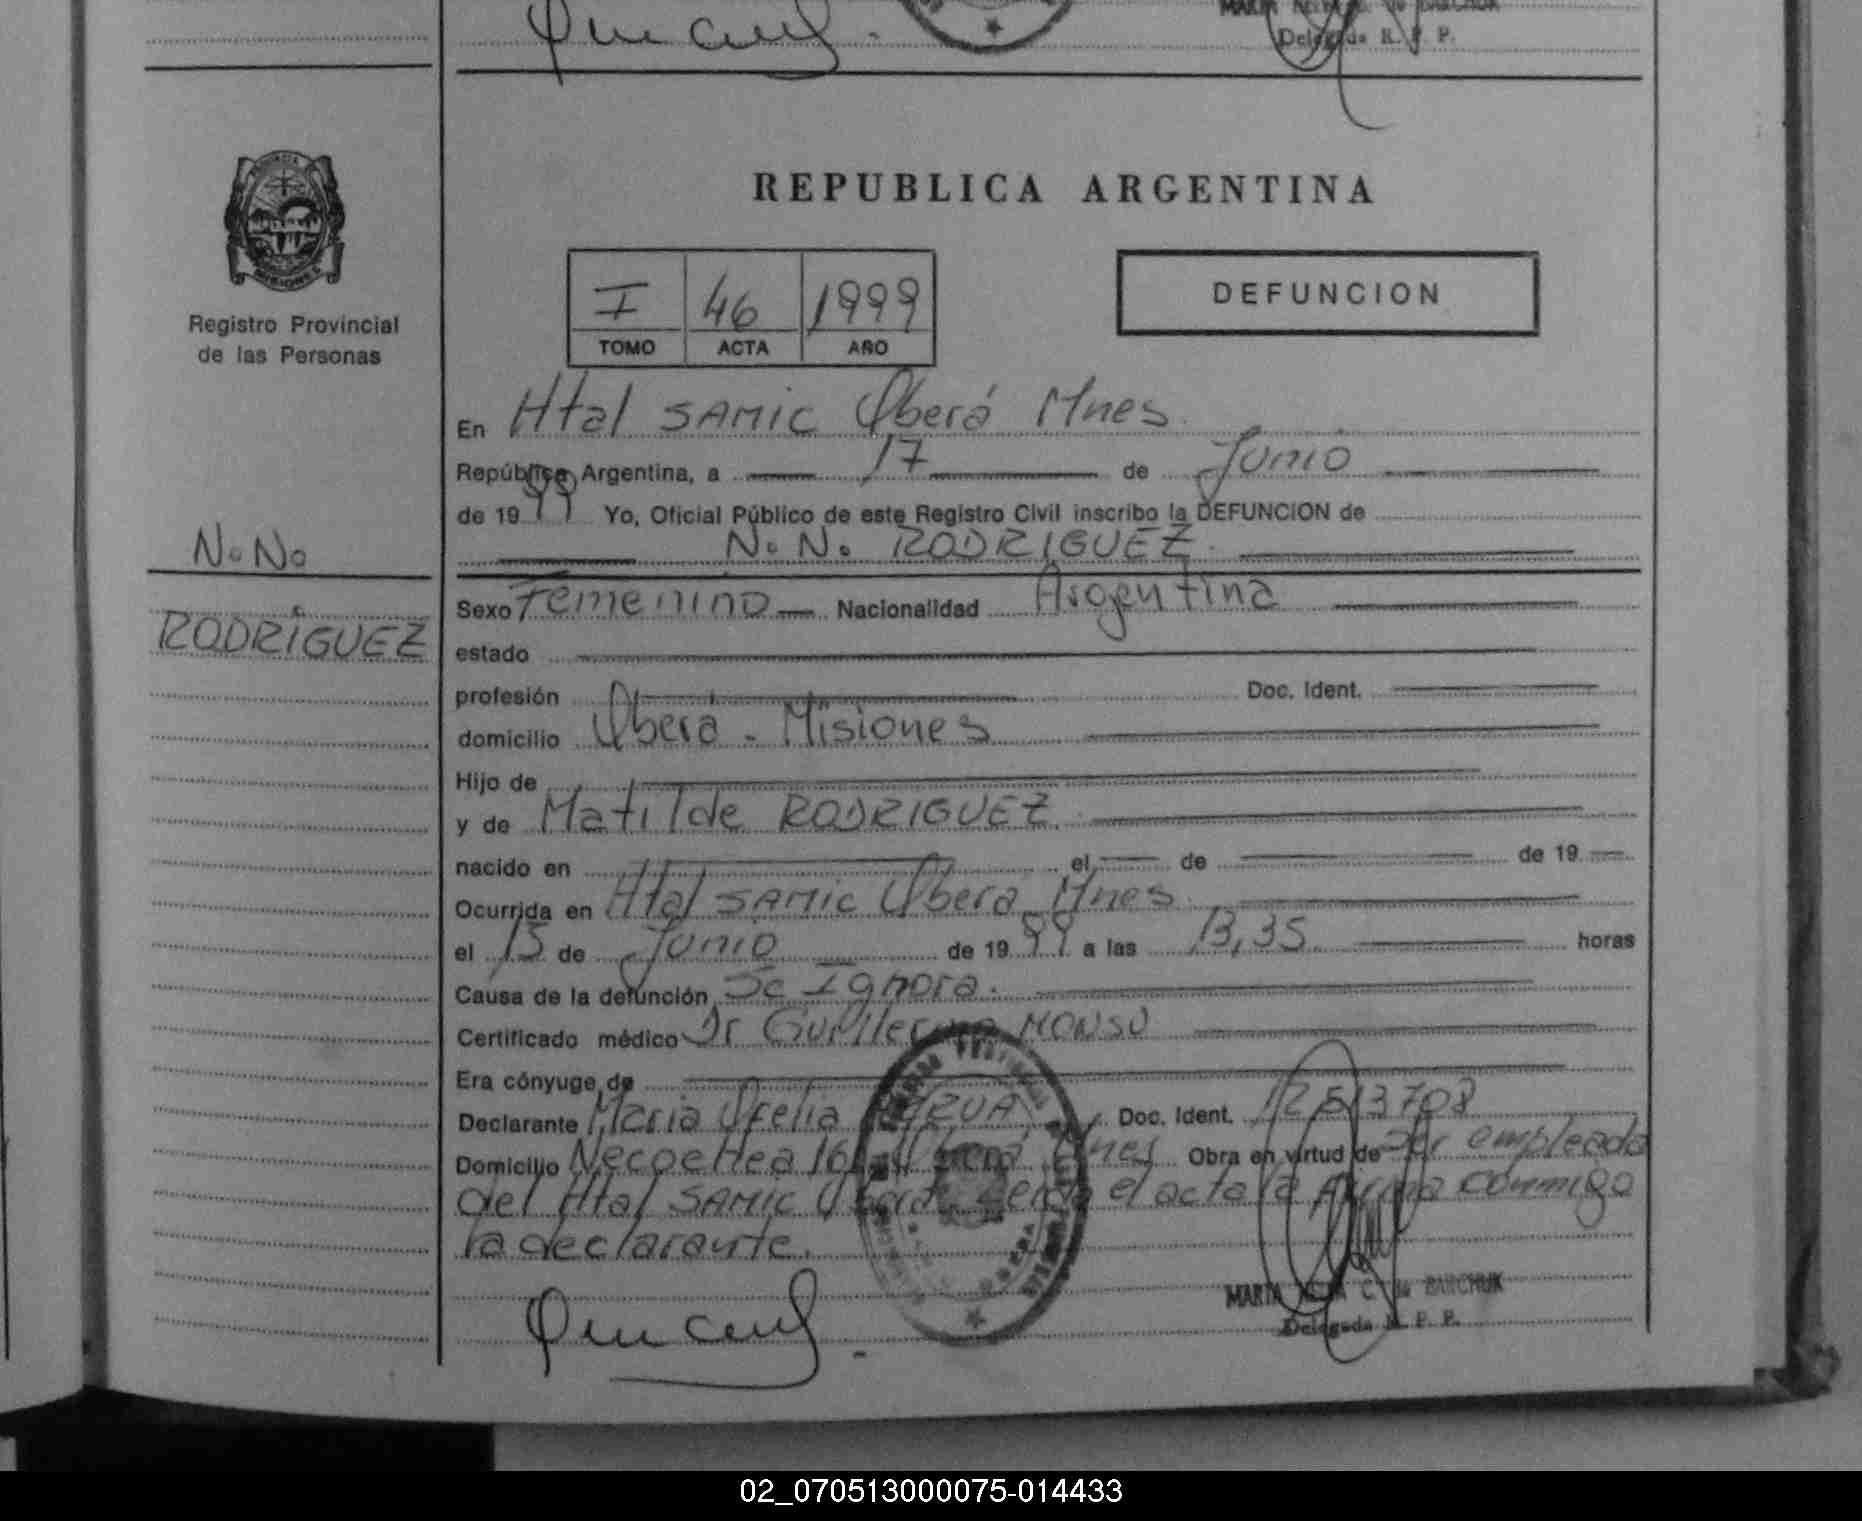 Delegada R. P. P.
REPUBLICA ARGENTINA
MISIONES
I 46 1999
TOMO ACTA AÑO
DEFUNCION
Registro Provincial
de las Personas
En Htal SAMIC Oberá Mnes.
República Argentina, a 17 de Junio
de 1999 Yo, Oficial Público de este Registro Civil inscribo la DEFUNCION de
N.No
N. N. RODRIGUEZ.
RODRIGUEZ
Sexo Femenino Nacionalidad Argentina
estado
profesión Doc. Ident.
domicilio Oberá - Misiones
Hijo de
y de Matilde RODRIGUEZ
nacido en el de de 19
Ocurrida en Htal SAMIC Oberá Mnes.
el 15 de Junio de 1999 a las 13,35 horas
Causa de la defunción Se Ignora.
Certificado médico Dr Guillermo MONSU
Era cónyuge de
Declarante Maria Ofelia Doc. Ident. 12513708
Domicilio Necochea Oberá Mnes Obra en virtud de Ser empleada
del Htal SAMIC Oberá Leida el acta la firma conmigo
la declarante.
MARTA C. de BARCHUK
Delegada R. P. P.
02_070513000075-014433